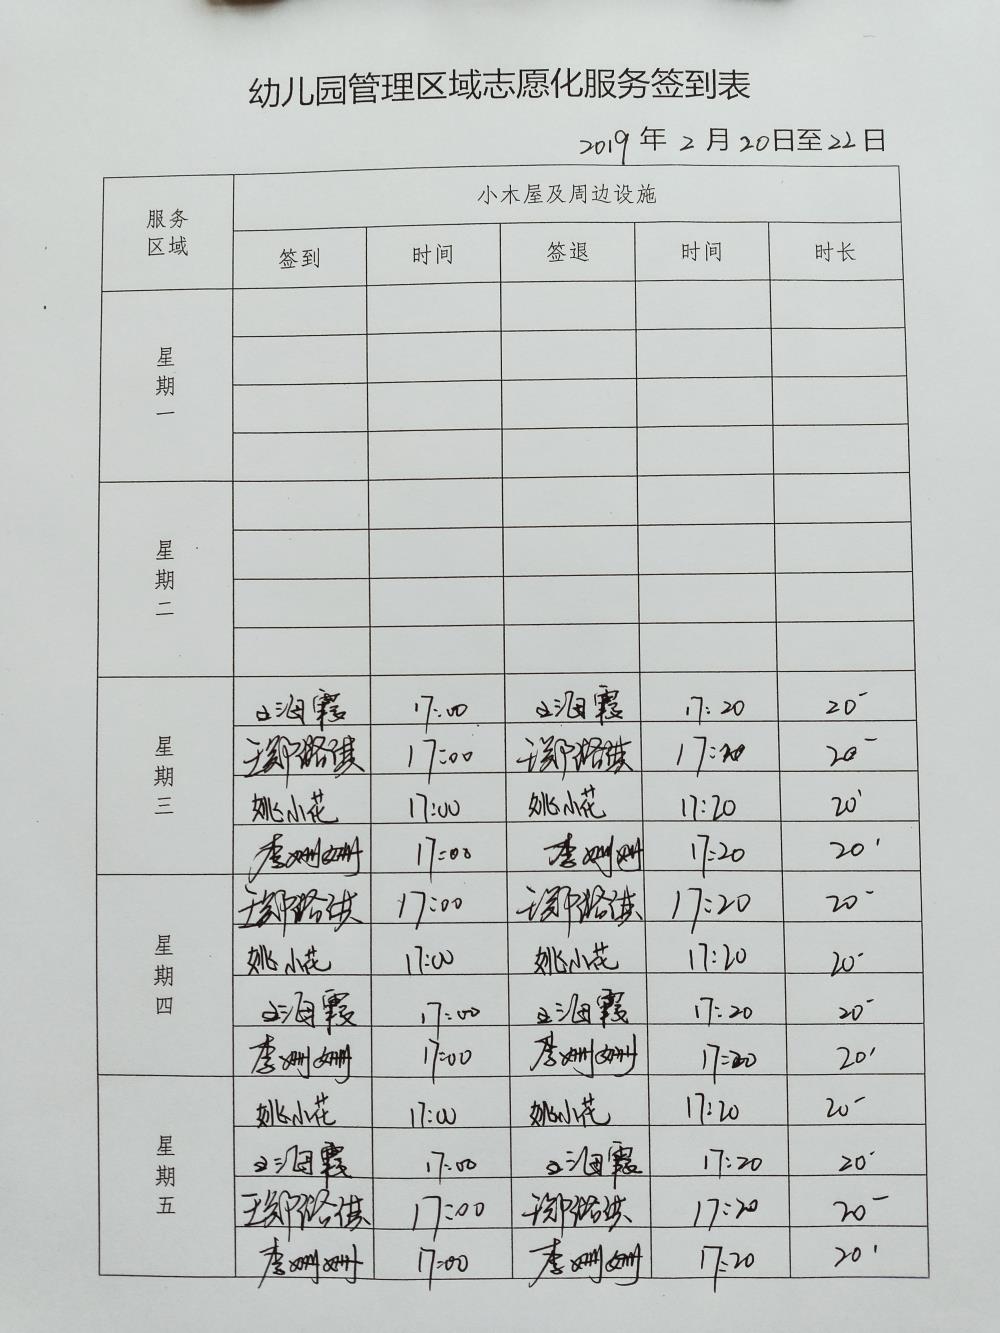 幼儿园管理区域志愿化服务签到表
2019年2月20日至22日
服务区域 小木屋及周边设施
签到 时间 签退 时间 时长
星期一
星期二
星期三
海霞 17:00 海霞 17:20 20'
17:00 17:20 20'
姚小花 17:00 姚小花 17:20 20'
李姗姗 17:00 李姗姗 17:20 20'
星期四
17:00 17:20 20'
姚小花 17:00 姚小花 17:20 20'
海霞 17:00 海霞 17:20 20'
李姗姗 17:00 李姗姗 17:20 20'
星期五
姚小花 17:00 姚小花 17:20 20'
海霞 17:00 海霞 17:20 20'
17:00 17:20 20'
李姗姗 17:00 李姗姗 17:20 20'